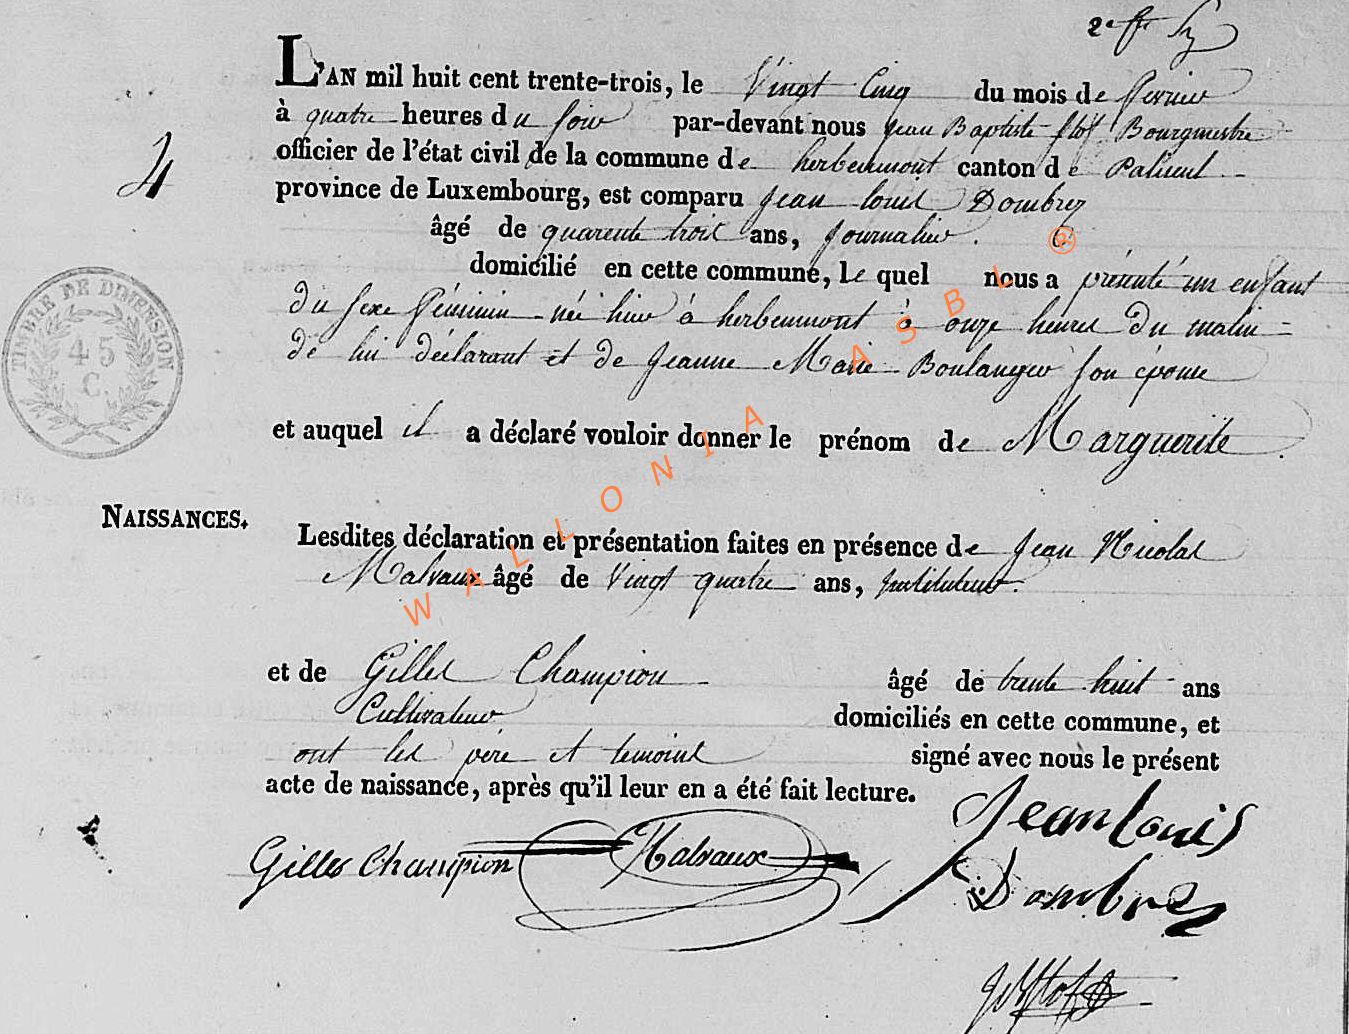 L'AN mil huit cent trente-trois, le Vingt Cinq du mois de fevrier
à quatre heures du soir par-devant nous jean Baptiste Bourgmestre
4
officier de l'état civil de la commune de herbeumont canton de Paliseul
province de Luxembourg, est comparu jean louis Dombrez
âgé de quarente trois ans, journalier.
domicilié en cette commune, le quel nous a présenté un enfant
du sexe féminin née hier à herbeumont à onze heures du matin
de lui déclarant et de jeanne Marie Boulanger son épouse
TIMBRE DE DIMENSION
45
C.
et auquel il a déclaré vouloir donner le prénom de Marguerite.
NAISSANCES.
Lesdites déclaration et présentation faites en présence de jean Nicolas
Malvaux âgé de Vingt quatre ans, instituteur.
et de Gilles Champion âgé de trente huit ans
Cultivateur domiciliés en cette commune, et
ont les père et temoins signé avec nous le présent
acte de naissance, après qu'il leur en a été fait lecture.
Jean louis
Gilles Champion Malvaux
Dombrez
WALLONIA ASBL ®